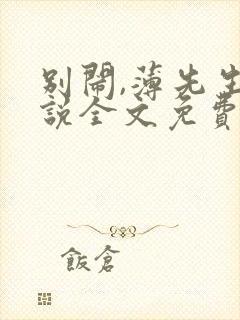 別鬧,薄先生
說全文免費
飯倉